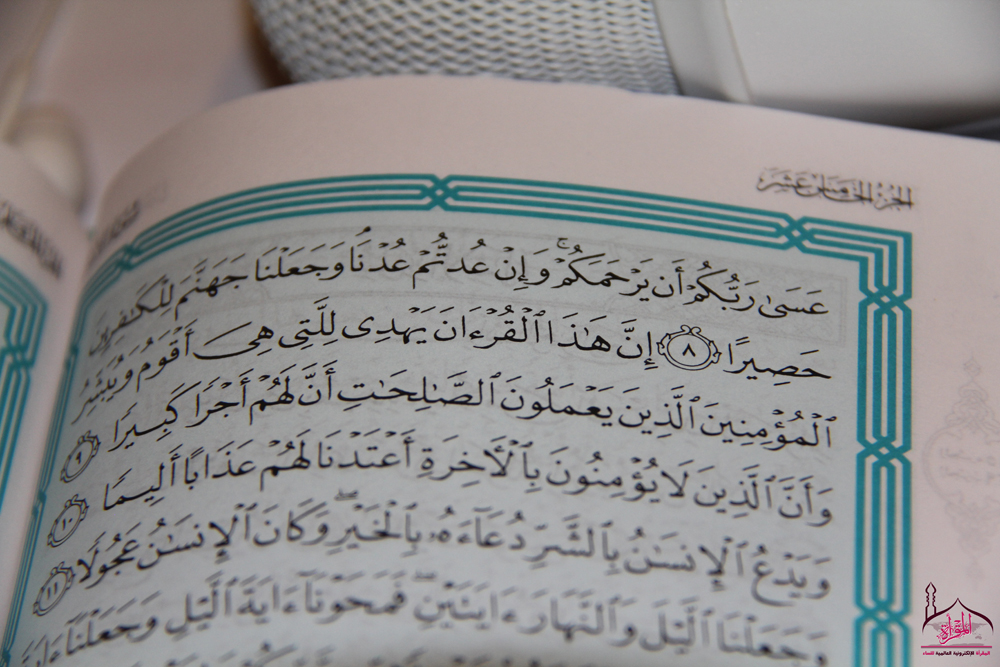 الجزء الخامس عشر
عَسَىٰ رَبُّكُمْ أَن يَرْحَمَكُمْ ۚ وَإِنْ عُدتُّمْ عُدْنَا ۘ وَجَعَلْنَا جَهَنَّمَ لِلْكَٰفِرِينَ
حَصِيرًا ٨ إِنَّ هَٰذَا ٱلْقُرْءَانَ يَهْدِى لِلَّتِى هِىَ أَقْوَمُ وَيُبَشِّرُ
ٱلْمُؤْمِنِينَ ٱلَّذِينَ يَعْمَلُونَ ٱلصَّٰلِحَٰتِ أَنَّ لَهُمْ أَجْرًا كَبِيرًا ٩
وَأَنَّ ٱلَّذِينَ لَا يُؤْمِنُونَ بِٱلْءَاخِرَةِ أَعْتَدْنَا لَهُمْ عَذَابًا أَلِيمًا ١٠
وَيَدْعُ ٱلْإِنسَٰنُ بِٱلشَّرِّ دُعَآءَهُۥ بِٱلْخَيْرِ ۖ وَكَانَ ٱلْإِنسَٰنُ عَجُولًا ١١
وَجَعَلْنَا ٱلَّيْلَ وَٱلنَّهَارَ ءَايَتَيْنِ ۖ فَمَحَوْنَآ ءَايَةَ ٱلَّيْلِ وَجَعَلْنَآ ءَايَةَ
المقرأة
المقرأة الإلكترونية العالمية للنساء